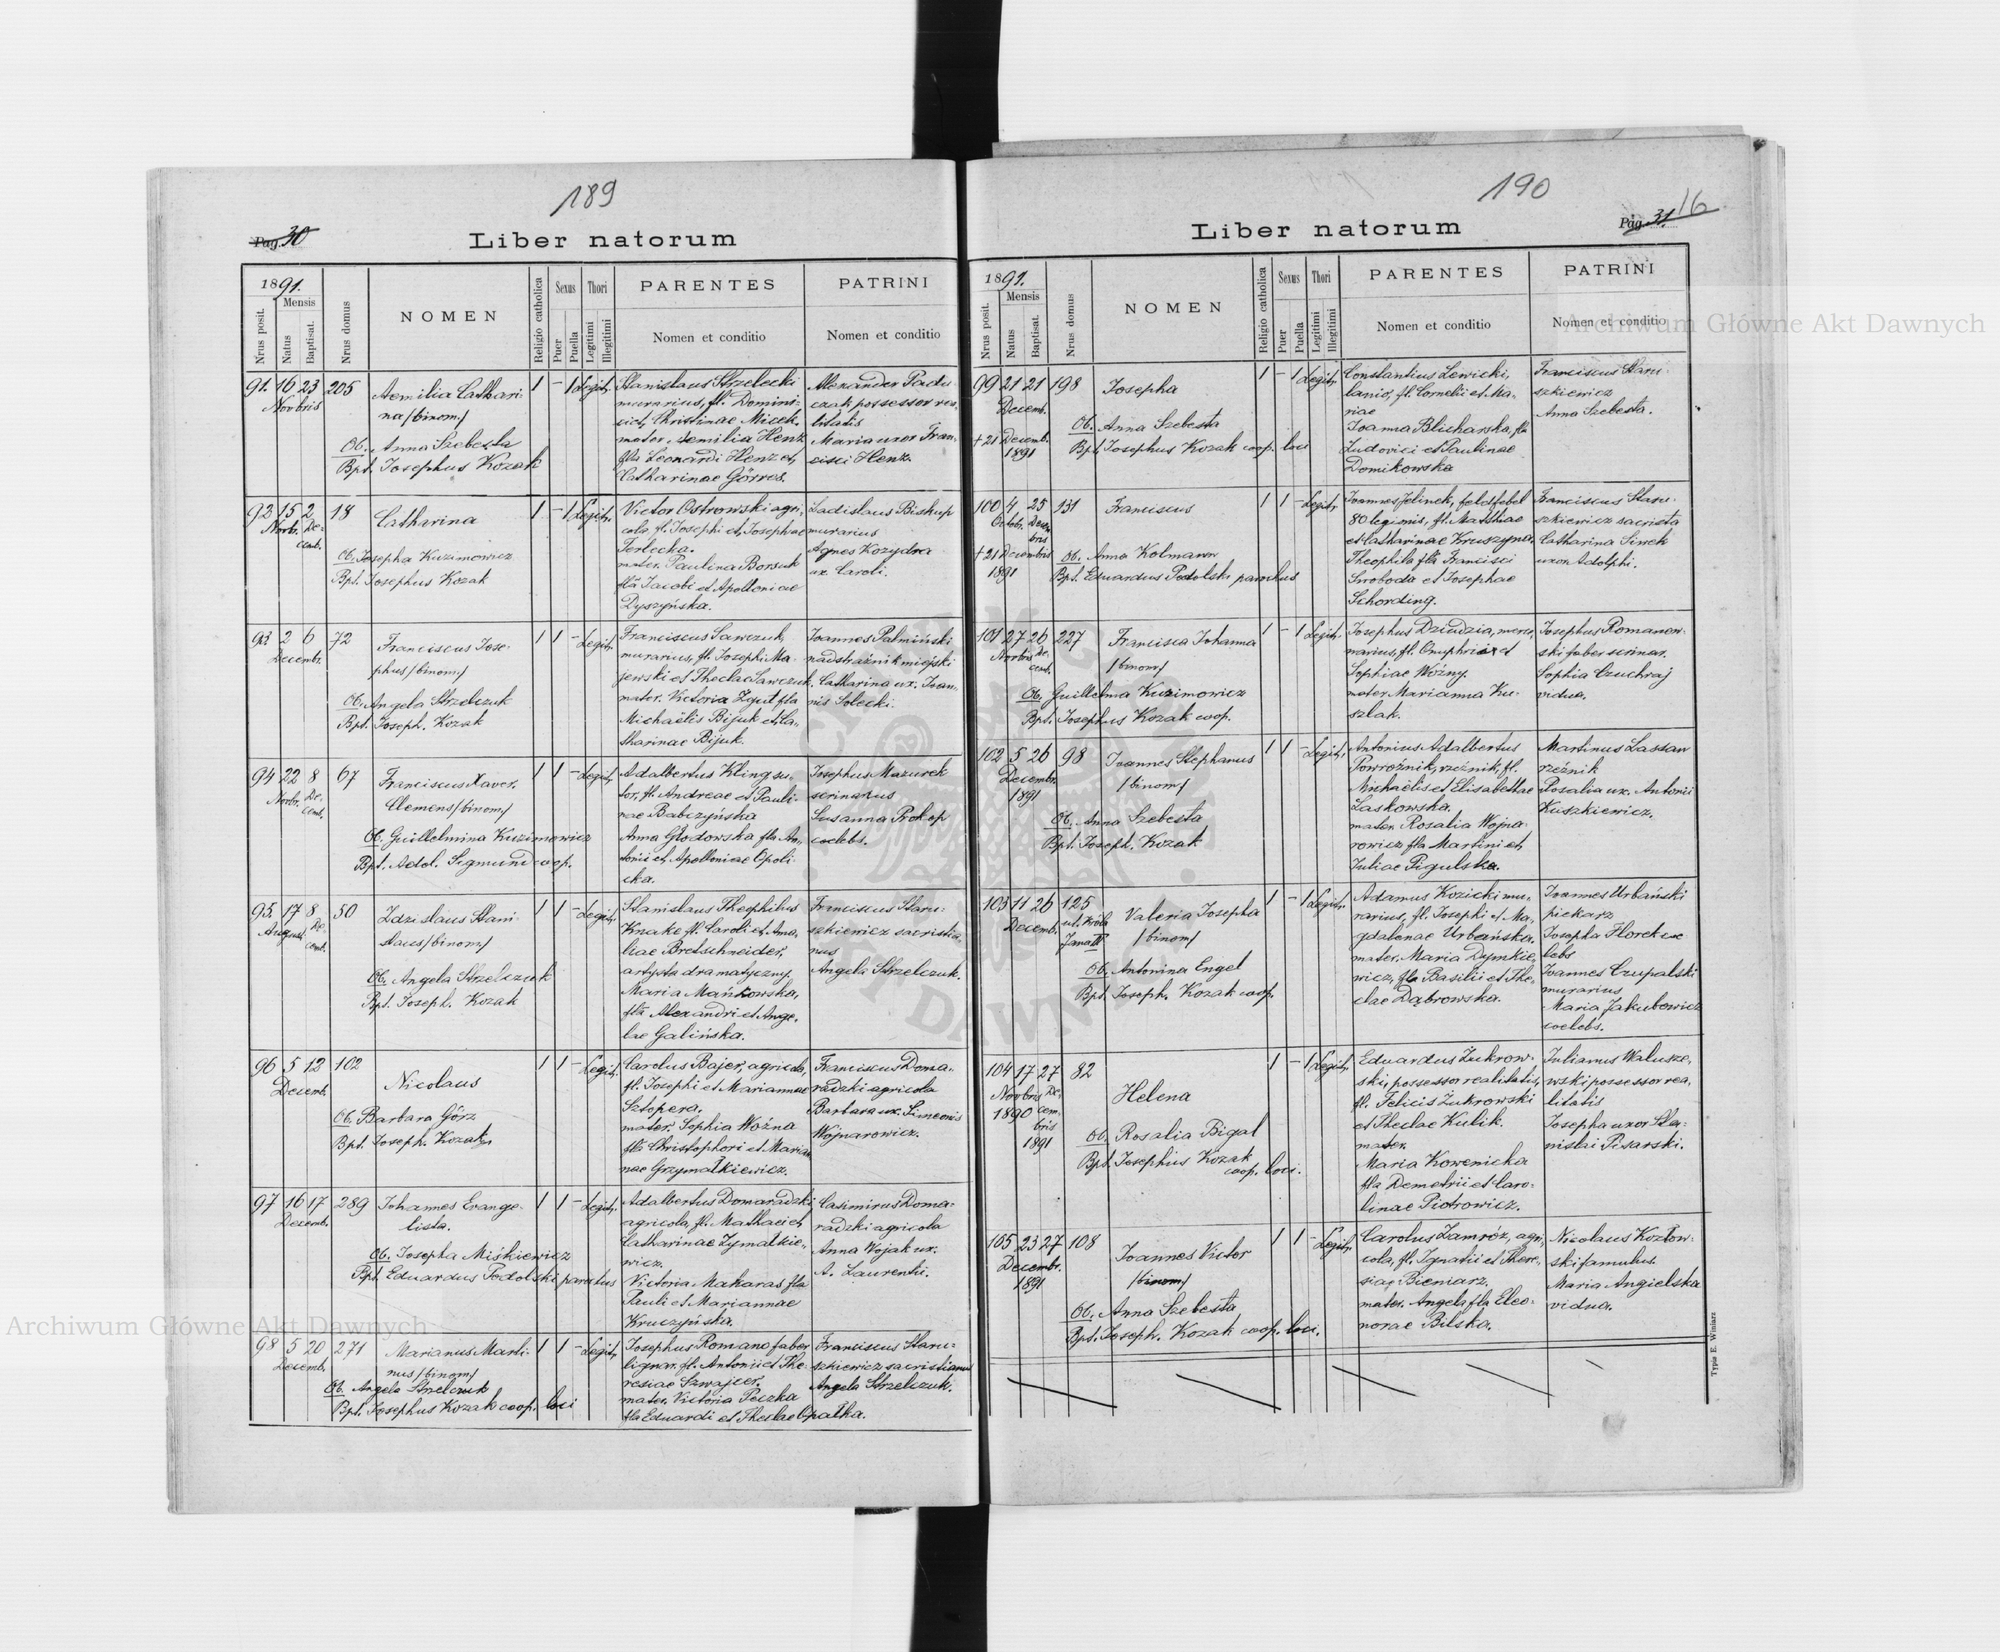 189
Pag. 30
Liber natorum
1891.
Mensis
Nrus posit.
Natus
Baptisat.
Nrus domus
NOMEN
Religio catholica
Sexus
Puer
Puella
Thori
Legitimi
Illegitimi
PARENTES
Nomen et conditio
PATRINI
Nomen et conditio
91. 16 23 205
Novbris
Aemilia Cathari-
na /binom/
Ob. Anna Szebesta
Bpt. Josephus Kozak
1 - 1 Legit.
Stanislaus Strzelecki
murarius, fl. Domini-
ci et Christinae Micek.
mater. Aemilia Henz
fla Leonardi Henz et
Catharinae Görres.
Alexander Padu
czak possessor rea-
litatis
Maria uxor Fran-
cisci Henz.
92 15 2 18
Novbr. De-
cemb.
Catharina
Ob. Josepha Kuzimowicz
Bpt. Josephus Kozak
1 - 1 Legit.
Victor Ostrowski agri-
cola, fl. Josephi et Josephae
Terlecka.
mater. Paulina Borsuk
fla Jacobi et Apolloniae
Dyszyńska.
Ladislaus Biskup
murarius
Agnes Kozydra
ux. Caroli.
93 2 6 72
Decembr.
Franciscus Jose-
phus /binom/
Ob. Angela Strzelczuk
Bpt. Joseph. Kozak
1 1 - Legit.
Franciscus Sawczuk,
murarius, fl. Josephi Ma-
jewski et Thecla Sawczuk,
mater. Victoria Zgut fla
Michaëlis Bijuk et Ca-
tharinae Bijuk.
Joannes Palmiński
nadstrażnik miejski
Catharina ux. Joan-
nis Solecki.
94 22 8 67
Novbr. De-
cemb.
Franciscus Xaver.
Clemens /binom/
Ob. Guillelmina Kuzimowicz
Bpt. Adol. Sigmund coop.
1 1 - Legit.
Adalbertus Kling su-
tor, fl. Andreae et Pauli-
nae Babczyńska
Anna Głodowska fla An-
tonii et Apolloniae Opoli-
cka.
Josephus Mazurek
scrinarius
Susanna Prokop
coelebs.
95. 17 8 50
August. De-
cemb.
Zdzislaus Stani-
slaus /binom/
Ob. Angela Strzelczuk
Bpt. Joseph. Kozak
1 1 - Legit.
Stanislaus Theophilus
Knake fl. Caroli et Ama-
liae Bretschneider,
artysta dramatyczny.
Maria Mańkowska,
fla Alexandri et Ange-
lae Galińska.
Franciscus Staru-
szkiewicz sacristia-
nus
Angela Strzelczuk.
96 5 12 102
Decemb.
Nicolaus
Ob. Barbara Görz
Bpt. Joseph. Kozak
1 1 - Legit.
Carolus Bajer, agricola,
fl. Josephi et Mariannae
Sztopera.
mater. Sophia Woźna
fla Christophori et Marian
nae Grzymałkiewicz.
Franciscus Doma-
radzki agricola
Barbara ux. Simeonis
Wojnarowicz.
97 16 17 289
Decemb.
Johannes Evange-
lista.
Ob. Josepha Miśkiewicz
Bpt. Eduardus Podolski parochus
1 1 - Legit.
Adalbertus Domaradzki
agricola, fl. Mathaei et
Catharinae Zymałkie-
wicz.
Victoria Makaras fla
Pauli et Mariannae
Kruczyńska.
Casimirus Doma-
radzki agricola
Anna Wojak ux.
A. Laurentii.
98 5 20 271
Decemb.
Marianus Marti-
nus /binom/
Ob. Angela Strzelczuk
Bpt. Josephus Kozak coop. loci
1 1 - Legit.
Josephus Romano faber
lignar. fl. Antonii et The-
resiae Szwajcer.
mater. Victoria Peczka
fla Eduardi et Theclae Opałka.
Franciscus Staru-
szkiewicz sacristianus
Angela Strzelczuk.
190
Pag. 31. 16
Liber natorum
1891.
Mensis
Nrus posit.
Natus
Baptisat.
Nrus domus
NOMEN
Religio catholica
Sexus
Puer
Puella
Thori
Legitimi
Illegitimi
PARENTES
Nomen et conditio
PATRINI
Nomen et conditio
99 21 21 198
Decemb.
+ 21 Decemb.
1891
Josepha
Ob. Anna Szebesta
Bpt. Josephus Kozak coop. loci
1 - 1 Legit.
Constantius Lewicki,
lanio, fl. Cornelii et Ma-
riae
Joanna Blicharska, fla
Ludovici et Paulinae
Domikowska
Franciscus Staru-
szkiewicz
Anna Szebesta.
100 4 25 131
Octobr. Decem-
bris
+ 21 Decembris
1891
Franciscus
Ob. Anna Kolmann
Bpt. Eduardus Podolski parochus
1 1 - Legit.
Joannes Jelinek, feldfebel
80 legionis, fl. Matthiae
et Catharinae Kruszyna.
Theophila fla Francisci
Swoboda et Josephae
Schording.
Franciscus Staru-
szkiewicz sacrista
Catharina Sirek
uxor Adolphi.
101 27 26 227
Novbris De-
cemb.
Francisca Johanna
/binom/
Ob. Guillelma Kuzimowicz
Bpt. Josephus Kozak coop.
1 - 1 Legit.
Josephus Dziudzia, merce-
narius, fl. Onuphrii et
Sophiae Woźny.
mater Marianna Ku-
szlak.
Josephus Romanow-
ski faber scrinar.
Sophia Czuchraj
vidua.
102 5 26 98
Decembr.
1891
Joannes Stephanus
/binom/
Ob. Anna Szebesta
Bpt. Joseph. Kozak
1 1 - Legit.
Antonius Adalbertus
Powroźnik, rzeźnik, fl.
Michaëlis et Elisabethae
Laskowska.
mater. Rosalia Wojna
rowicz fla Martini et
Juliae Pigulska.
Martinus Lassan
rzeźnik
Rosalia ux. Antonii
Kuszkiewicz.
103 11 26 125
Decemb.
Valeria Josepha
/binom/
Ob. Antonina Engel
Bpt. Joseph. Kozak coop.
1 - 1 Legit.
Adamus Kozicki mu-
rarius, fl. Josephi et Ma-
gdalenae Urbańska.
mater. Maria Dymkie-
wicz, fla Basilii et The-
clae Dąbrowska.
Joannes Urbański
piekarz
Josepha Florek coe
lebs
Joannes Czupalski
murarius
Maria Jakubowicz
coelebs.
104 17 27 82
Novbris De-
1890 cem-
bris
1891
Helena
Ob. Rosalia Bigal
Bpt. Josephus Kozak
coop. loci.
1 - 1 Legit.
Eduardus Żukrow-
ski, possessor realitatis,
fl. Felicis Żukrowski
et Theclae Kulik.
mater.
Maria Kowenicka
fla Demetrii et Caro-
linae Piotrowicz.
Julianus Walusze-
wski possessor rea-
litatis
Josepha uxor Sta-
nislai Pisarski.
105 23 27 108
Decembr.
1891
Joannes Victor
/binom/
Ob. Anna Szebesta
Bpt. Joseph. Kozak coop. loci.
1 1 - Legit.
Carolus Zamróz, agri-
cola, fl. Ignatii et There-
siae Bieniarz.
mater. Angela fla Eleo-
norae Bilska.
Nicolaus Kozłow-
ski famulus.
Maria Angielska
vidua.
Typis E. Winiarz
Archiwum Główne Akt Dawnych
Archiwum Główne Akt Dawnych